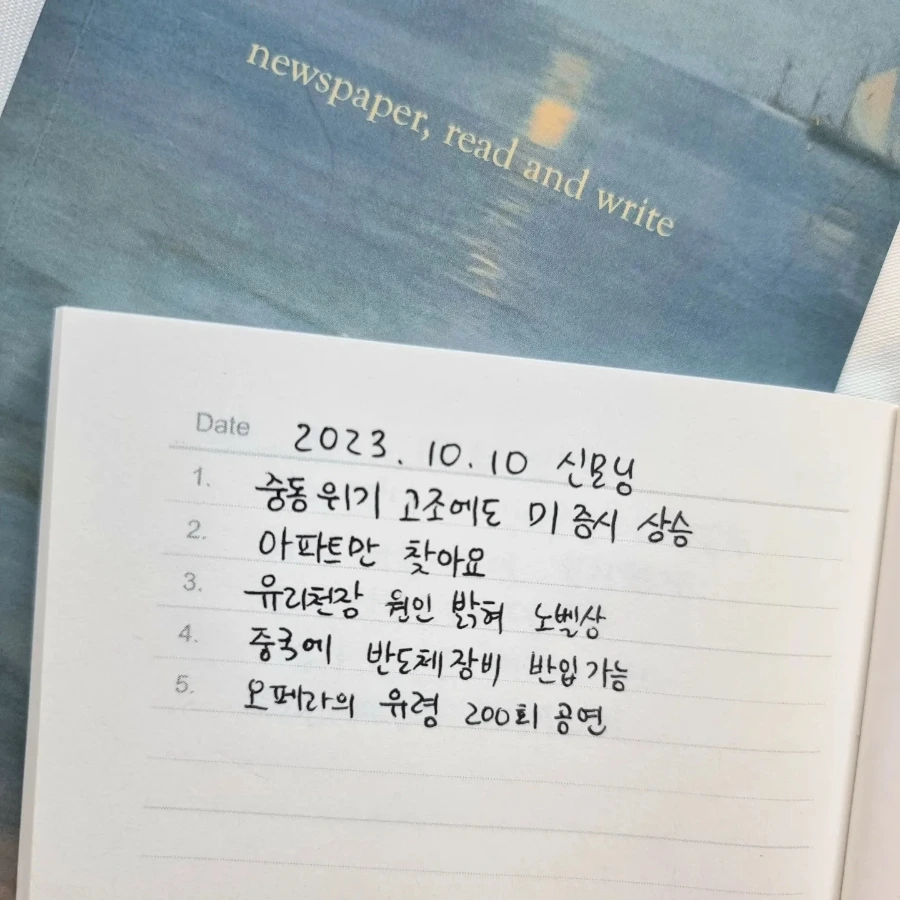 newspaper, read and write
Date 2023. 10. 10 신모닝
1. 중동 위기 고조에도 미 증시 상승
2. 아파트만 찾아요
3. 유리천장 원인 밝혀 노벨상
4. 중국에 반도체장비 반입가능
5. 오페라의 유령 200회 공연